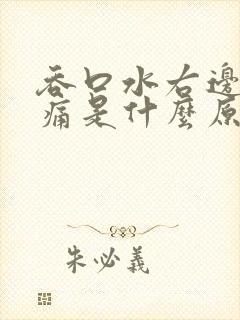 吞口水右邊
痛是什麼原
朱必義